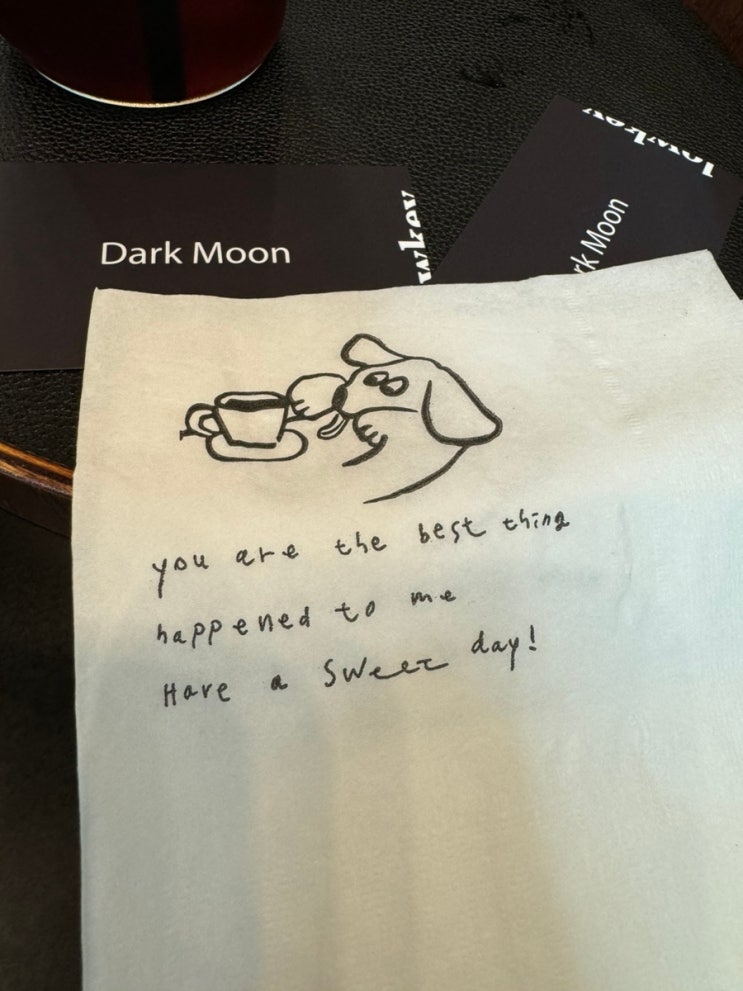 Dark Moon
lowkey
you are the best thing
happened to me
Have a Sweet day!